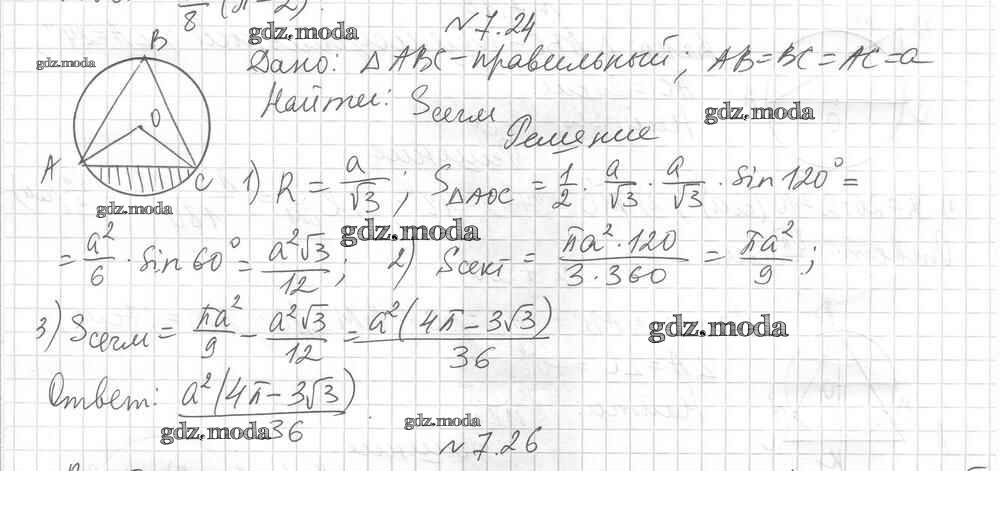 8 (π-2).
gdz.moda
№7.24
gdz.moda
B
O
A
C
Дано: △ABC - правильный; AB=BC=AC=a
Найти: Sсегм
gdz.moda
Решение
1) R = a/√3; S△AOC = 1/2 · a/√3 · a/√3 · sin 120° =
gdz.moda
gdz.moda
= a²/6 · sin 60° = a²√3/12; 2) Sсект = πa²·120/3·360 = πa²/9;
3) Sсегм = πa²/9 - a²√3/12 = a²(4π-3√3)/36
gdz.moda
Ответ: a²(4π-3√3)/36.
gdz.moda
gdz.moda
№7.26